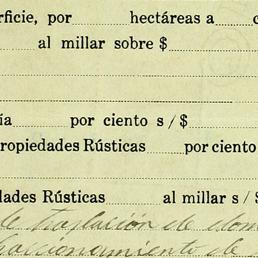 rficie, por ........ hectáreas a ........ c
........ al millar sobre $ ........
ía ........ por ciento s/$ ........
ropiedades Rústicas ........ por ciento
dades Rústicas ........ al millar s/$
de traslación de dom
fraccionamiento de